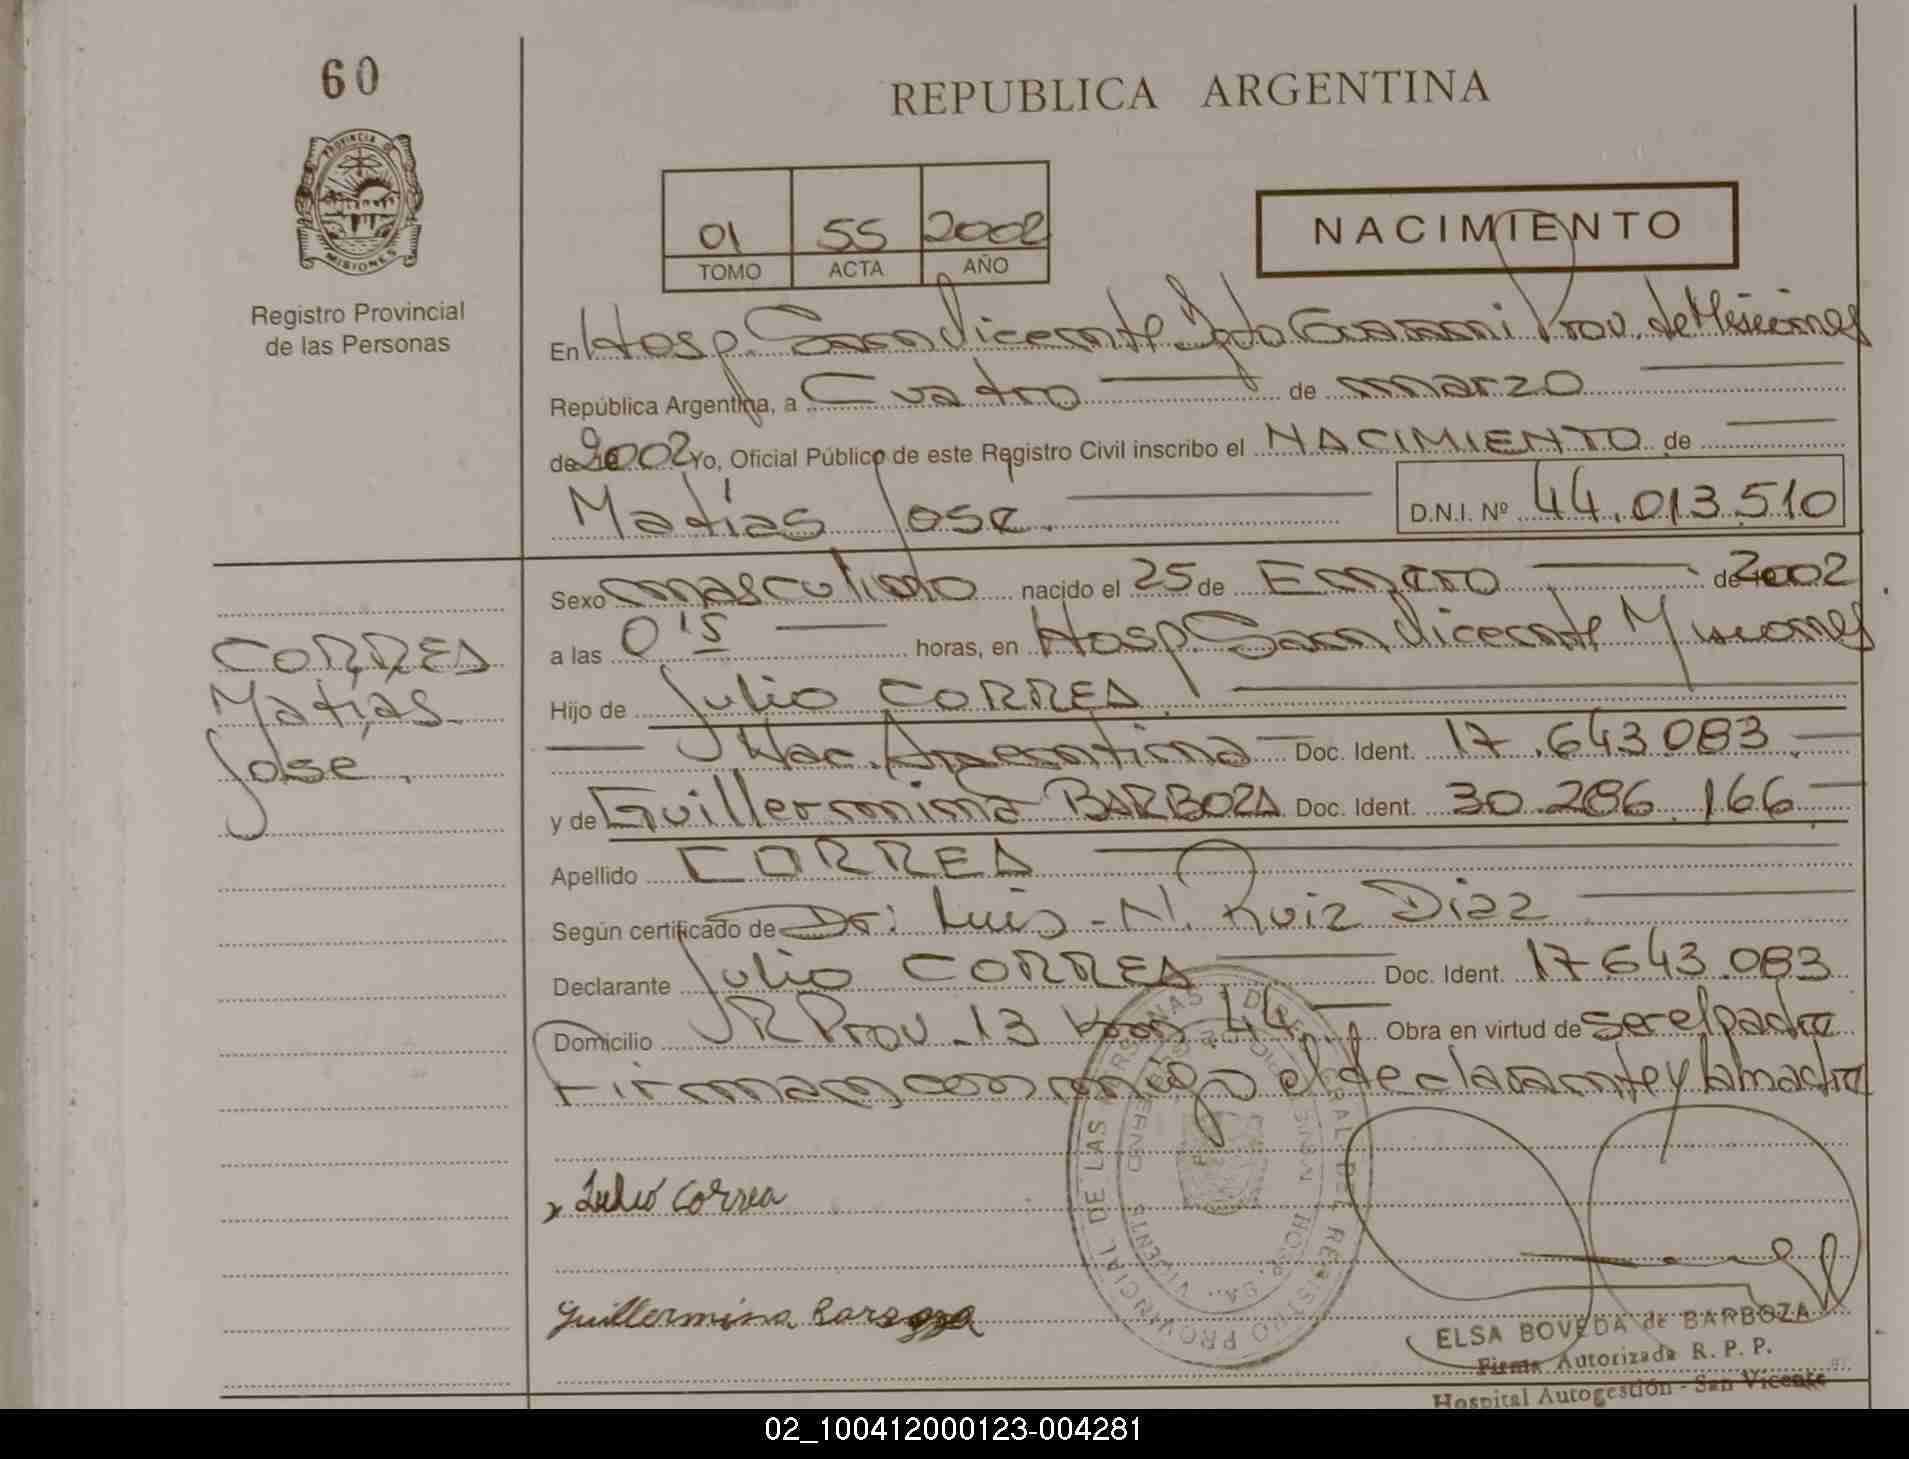 60
REPUBLICA ARGENTINA
PROVINCIA DE
MISIONES
Registro Provincial
de las Personas
01 55 2002
TOMO ACTA AÑO
NACIMIENTO
En Hosp. San Vicente Dpto Guarani Prov. de Misiones
República Argentina, a Cuatro de marzo
de 2002 Yo, Oficial Público de este Registro Civil inscribo el NACIMIENTO de
Matías Jose D.N.I. Nº 44.013.510
CORREA
Matias
Jose.
Sexo masculino nacido el 25 de Enero de 2002
a las 0'15 horas, en Hosp. San Vicente Misiones
Hijo de Julio CORREA
Nac. Argentina Doc. Ident. 17.643.083
y de Guillermina BARBOZA Doc. Ident. 30.286.166
Apellido CORREA
Según certificado de Dr: Luis N. Ruiz Diaz
Declarante Julio CORREA Doc. Ident. 17.643.083
Domicilio R Prov. 13 Km 44 Obra en virtud de ser el padre
Firman conmigo el declarante y la madre
x Julio Correa
Guillermina
ELSA BOVEDA de BARBOZA
Firma Autorizada R. P. P.
Hospital Autogestión - San Vicente
02_100412000123-004281